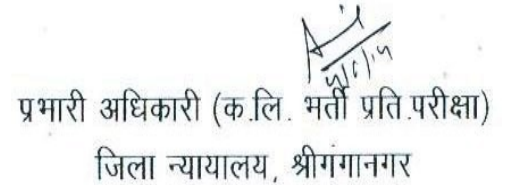 प्रभारी अधिकारी (क.लि. भर्ती प्रति.परीक्षा)
जिला न्यायालय, श्रीगंगानगर